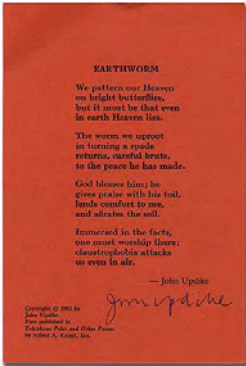 EARTHWORM
We pattern our Heaven
on bright butterflies,
but it must be that even
in earth Heaven lies.
The worm we uproot
in turning a spade
returns, careful brute,
to the peace he has made.
God blesses him; he
gives praise with his toil,
lends comfort to me,
and aërates the soil.
Immersed in the facts,
one must worship there;
claustrophobia attacks
us even in air.
— John Updike
John Updike
Copyright © 1962 by
John Updike.
First published in
Telephone Poles and Other Poems
by Alfred A. Knopf, Inc.